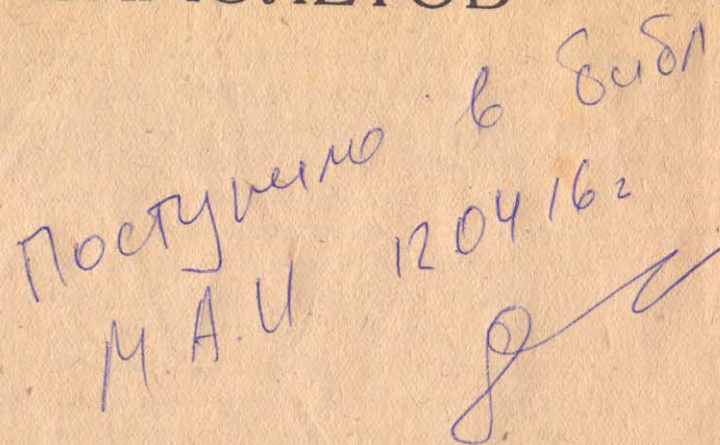 Поступило в библ
М.А.И. 12 04 16г